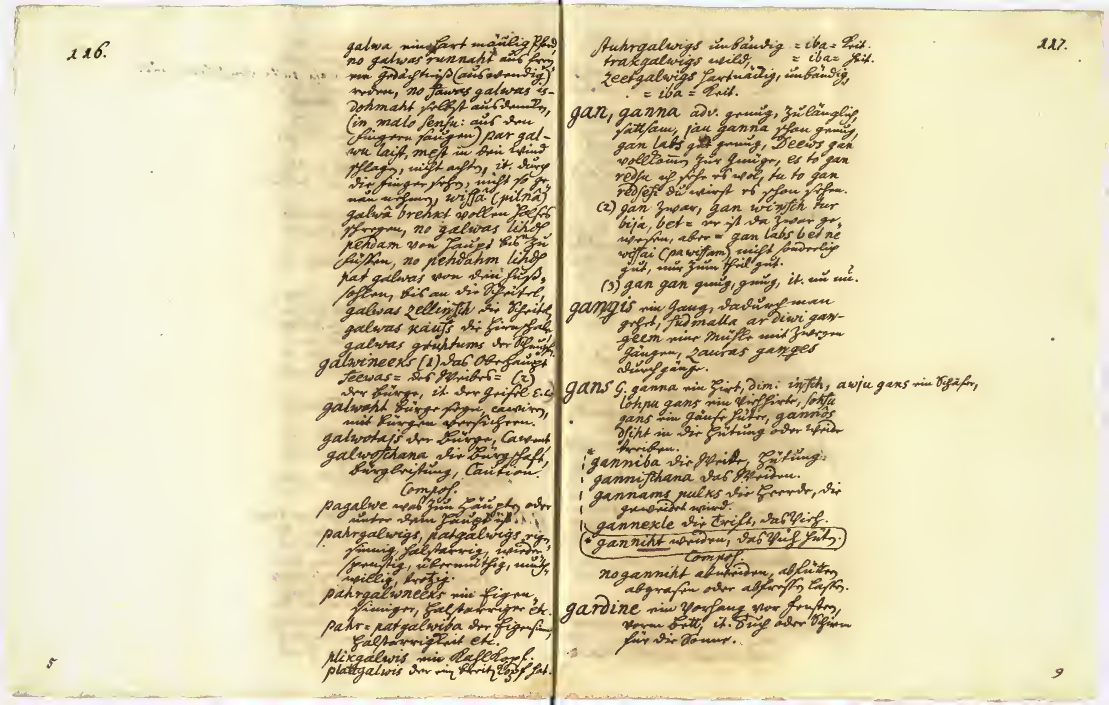 116.
galwa ein hart mäulig Pferd,
no galwas runnaht aus freyem
Gedächtniß (auswendig)
reden, no sawas galwas is-
dohmaht selbst ausdencken,
(in malo sensu: aus den
Fingern saugen) par gal-
wu laist, meist in den Wind
schlagen, nicht achten, it. durch
die Finger sehen, nicht so ge-
nau nehmen, wissâ (pilnâ)
galwâ brehkt vollen Halses
schreyen, no galwas lihds
pehdam von Haupt bis zu
Füssen, no pehdahm lihds
pat galwas von den Fuß-
sohlen, bis an die Scheitel,
galwas zellinsch die Scheitel
galwas kauss die Hirnschale
galwas gruhtums der
galwineeks (1) das Oberhaupt
seewas = des Weibes = (2)
der Bürge, it. der Geisel
galwoht Bürge seyn, caviren,
mit Bürgen versichern.
galwotajs der Bürge, Cavent
galwoschana die Bürgschaft,
Bürgleistung, Caution.
Compos.
pagalwe was zum Häupten oder
unter dem Haupt ist.
pahrgalwigs, patgalwigs eigen-
sinnig, halsstarrig, wieder-
spenstig, übermüthig, muth-
willig, trotzig.
pahrgalwneeks ein Eigen-
sinniger, halsstarriger etc.
pahr = patgalwiba der Eigensinn,
Halsstarrigkeit etc.
plikgalwis ein Kahlkopf.
plattgalwis der ein breiten Kopf hat.
5
117.
stuhrgalwigs unbändig = iba = keit.
trakgalwigs wild, = iba = heit.
zeetgalwigs hartnäckig, unbändig,
= iba = keit.
gan, ganna adv. genug, zulänglich,
sattsam, jau ganna schon genug,
gan labs gut genug, Deews gan
vollkommen zur Gnüge, es to gan
redsu ich sehe es wol, tu to gan
redsesi du wirst es schon sehen.
(2) gan zwar, gan winsch tur
bija, bet = er ist da zwar ge-
wesen, aber = gan labs bet ne
wissai (pawissam) nicht sonderlich
gut, nur zum theil gut.
(3) gan gan gnug, gnug, it. nu nu.
gangis ein Gang, dadurch man
gehet, sudmalla ar diwi gan-
geem eine Mühle mit zweyen
Gängen, zauras ganges
durchgänge.
gans G. ganna ein Hirt, dim: insch, awju gans ein Schäfer,
lohpu gans ein Viehhirte, sohsu
gans ein Gänse Hüter, gannôs
dsiht in die Hütung oder Weide
treiben.
ganniba die Weide, Hütung.
gannischana das Weiden.
gannams pulks die Heerde, die
geweidet wird.
gannekle die Trift, das Vieh.
* ganniht weiden, das Vieh hüten.
Compos.
noganniht abweiden, abfüttern
abgrasen oder abfressen lassen.
gardine ein Vorhang vor Fenster,
vorm Bett, it. Tuch oder Schirm
für die Sonne.
9